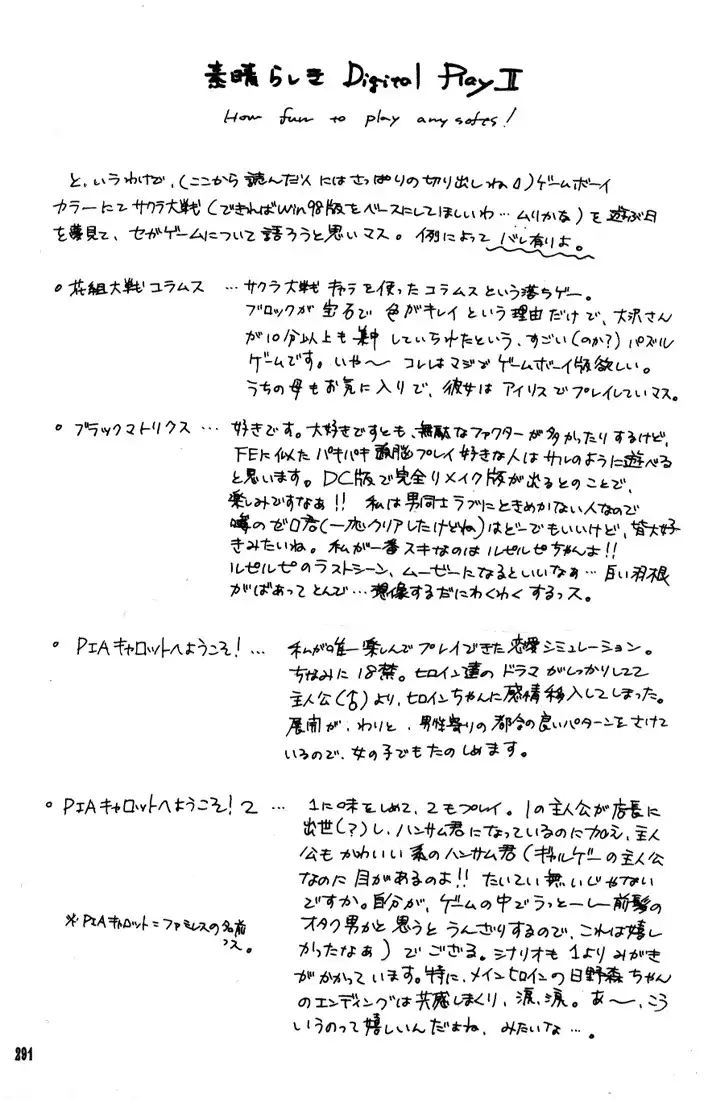 素晴らしき Digital Play II
How fun to play any softs!
と、いうわけで、(ここから読んだ人にはさっぱりの切り出しね♡)ゲームボーイ
カラーにてサクラ大戦(できればWin98版をベースにしてほしいわ…ムリかな)を遊ぶ日
を夢見て、セガゲームについて語ろうと思いマス。例によってバレ有りよ。
○花組大戦コラムス …サクラ大戦キャラを使ったコラムスという落ちゲー。
ブロックが宝石で色がキレイという理由だけで、大沢さん
が10分以上も集中していられたという、すごい(のか?)パズル
ゲームです。いや〜コレはマジでゲームボーイ版欲しい。
うちの母もお気に入りで、彼女はアイリスでプレイしていマス。
○ブラックマトリクス … 好きです。大好きですとも、無駄なファクターが多かったりするけど、
FEに似たパキパキ頭脳プレイ好きな人はサルのように遊べる
と思います。DC版で完全リメイク版が出るとのことで、
楽しみですなぁ!! 私は男同士ラブにときめかない人なので
噂のゼロ君(一応クリアしたけどね)はどーでもいいけど、皆大好
きみたいね。私が一番スキなのはルピルピちゃんよ!!
ルピルピのラストシーン、ムービーになるといいなぁ…白い羽根
がばあってとんで…想像するだにわくわくするっス。
○PIAキャロットへようこそ! … 私が唯一楽しんでプレイできた恋愛シミュレーション。
ちなみに18禁。ヒロイン達のドラマがしっかりしてて
主人公(♂)より、ヒロインちゃんに感情移入してしまった。
展開が、わりと、男性寄りの都合の良いパターンをさけて
いるので、女の子でもたのしめます。
○PIAキャロットへようこそ! 2 … 1に味をしめて、2もプレイ。1の主人公が店長に
出世(?)し、ハンサム君になっているのに加え、主人
公もかわいい系のハンサム君(ギャルゲーの主人公
なのに目があるのよ!! たいてい無いじゃない
ですか。自分が、ゲームの中でうっとーしー前髪の
オタク男かと思うとうんざりするので、これは嬉し
かったなぁ)でござる。シナリオも1よりみがき
がかかっています。特に、メインヒロインの日野森ちゃん
のエンディングは共感しまくり、涙、涙。あ〜、こう
いうのって嬉しいんだよね、みたいな…。
※PIAキャロット=ファミレスの名前
っス。
291